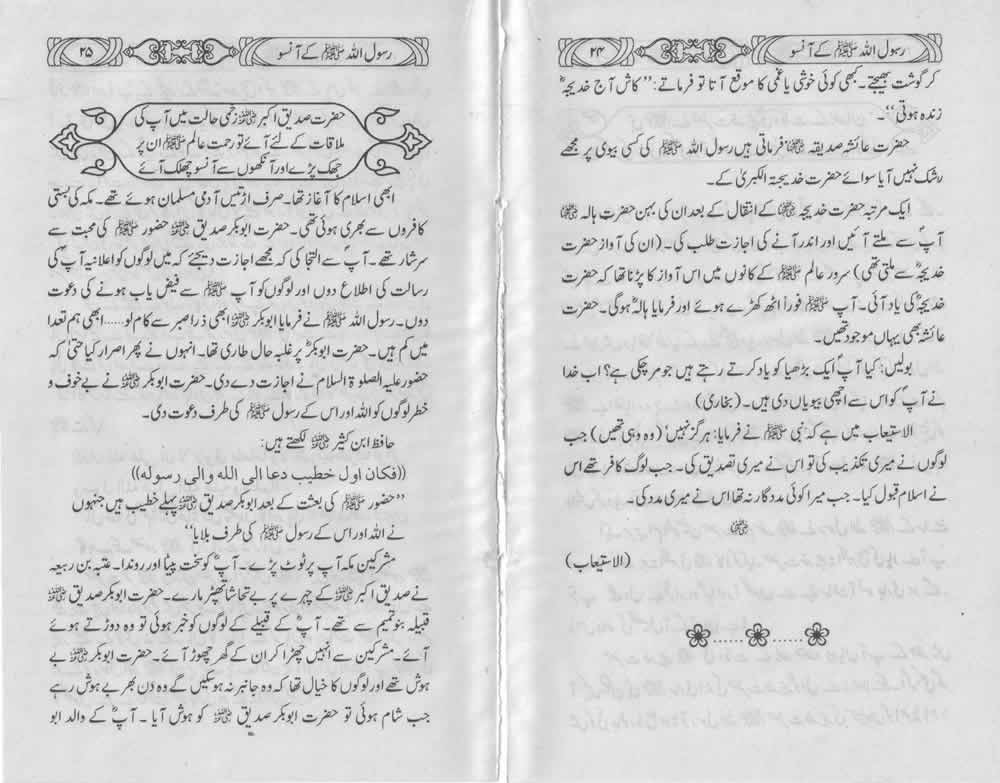 رسول اللہ ﷺ کے آنسو
۲۴
کر گوشت بھیجتے۔ کبھی کوئی خوشی یا غمی کا موقع آتا تو فرماتے: ’’کاش آج خدیجہؓ
زندہ ہوتی‘‘۔
حضرت عائشہ صدیقہ ؓ فرماتی ہیں رسول اللہ ﷺ کی کسی بیوی پر مجھے
رشک نہیں آیا سوائے حضرت خدیجۃ الکبریٰ کے۔
ایک مرتبہ حضرت خدیجہ ؓ کے انتقال کے بعد ان کی بہن حضرت ہالہ ؓ
آپؐ سے ملنے آئیں اور اندر آنے کی اجازت طلب کی۔ (ان کی آواز حضرت
خدیجہؓ سے ملتی تھی) سرور عالم ﷺ کے کانوں میں اس آواز کا پڑنا تھا کہ حضرت
خدیجہؓ کی یاد آئی۔ آپ ﷺ فوراً اٹھ کھڑے ہوئے اور فرمایا ہالہؓ ہوگی۔ حضرت
عائشہؓ بھی یہاں موجود تھیں۔
بولیں: کیا آپؐ ایک بڑھیا کو یاد کرتے رہتے ہیں جو مر چکی ہے؟ اب خدا
نے آپؐ کو اس سے اچھی بیویاں دی ہیں۔ (بخاری)
الاستیعاب میں ہے کہ نبی ﷺ نے فرمایا: ہرگز نہیں‘ (وہ وہی تھیں) جب
لوگوں نے میری تکذیب کی تو اس نے میری تصدیق کی۔ جب لوگ کافر تھے اس
نے اسلام قبول کیا۔ جب میرا کوئی مددگار نہ تھا اس نے میری مدد کی۔
ؓ
(الاستیعاب)
رسول اللہ ﷺ کے آنسو
۲۵
حضرت صدیق اکبر ؓ زخمی حالت میں آپ کی
ملاقات کے لئے آئے تو رحمت عالم ﷺ ان پر
جھک پڑے اور آنکھوں سے آنسو چھلک آئے
ابھی اسلام کا آغاز تھا۔ صرف اڑتیس آدمی مسلمان ہوئے تھے۔ مکہ کی بستی
کافروں سے بھری ہوئی تھی۔ حضرت ابوبکر صدیق ؓ حضور ﷺ کی محبت سے
سرشار تھے۔ آپؐ سے التجا کی کہ مجھے اجازت دیجئے کہ میں لوگوں کو اعلانیہ آپؐ کی
رسالت کی اطلاع دوں اور لوگوں کو آپ ﷺ سے فیض یاب ہونے کی دعوت
دوں۔ رسول اللہ ﷺ نے فرمایا ابوبکر ؓ ابھی ذرا صبر سے کام لو...... ابھی ہم تعدا
میں کم ہیں۔ حضرت ابوبکرؓ پر غلبہ حال طاری تھا۔ انہوں نے پھر اصرار کیا حتیٰ کہ
حضور علیہ الصلوۃ السلام نے اجازت دے دی۔ حضرت ابوبکر ؓ نے بے خوف و
خطر لوگوں کو اللہ اور اس کے رسول ﷺ کی طرف دعوت دی۔
حافظ ابن کثیر ؓ لکھتے ہیں:
((فكان اول خطيب دعا الى الله والى رسوله))
’’حضور ﷺ کی بعثت کے بعد ابوبکر صدیق ؓ پہلے خطیب ہیں جنہوں
نے اللہ اور اس کے رسول ﷺ کی طرف بلایا‘‘
مشرکین مکہ آپ پر ٹوٹ پڑے۔ آپؓ کو سخت پیٹا اور روندا۔ عتبہ بن ربیعہ
نے صدیق اکبر ؓ کے چہرے پر بے تحاشا تھپڑ مارے۔ حضرت ابوبکر صدیق ؓ
قبیلہ بنوتمیم سے تھے۔ آپؓ کے قبیلے کے لوگوں کو خبر ہوئی تو وہ دوڑتے ہوئے
آئے۔ مشرکین سے انہیں چھڑا کر ان کے گھر چھوڑ آئے۔ حضرت ابوبکر ؓ بے
ہوش تھے اور لوگوں کا خیال تھا کہ وہ جانبر نہ ہو سکیں گے وہ دن بھر بے ہوش رہے
جب شام ہوئی تو حضرت ابوبکر صدیق ؓ کو ہوش آیا۔ آپؓ کے والد ابو